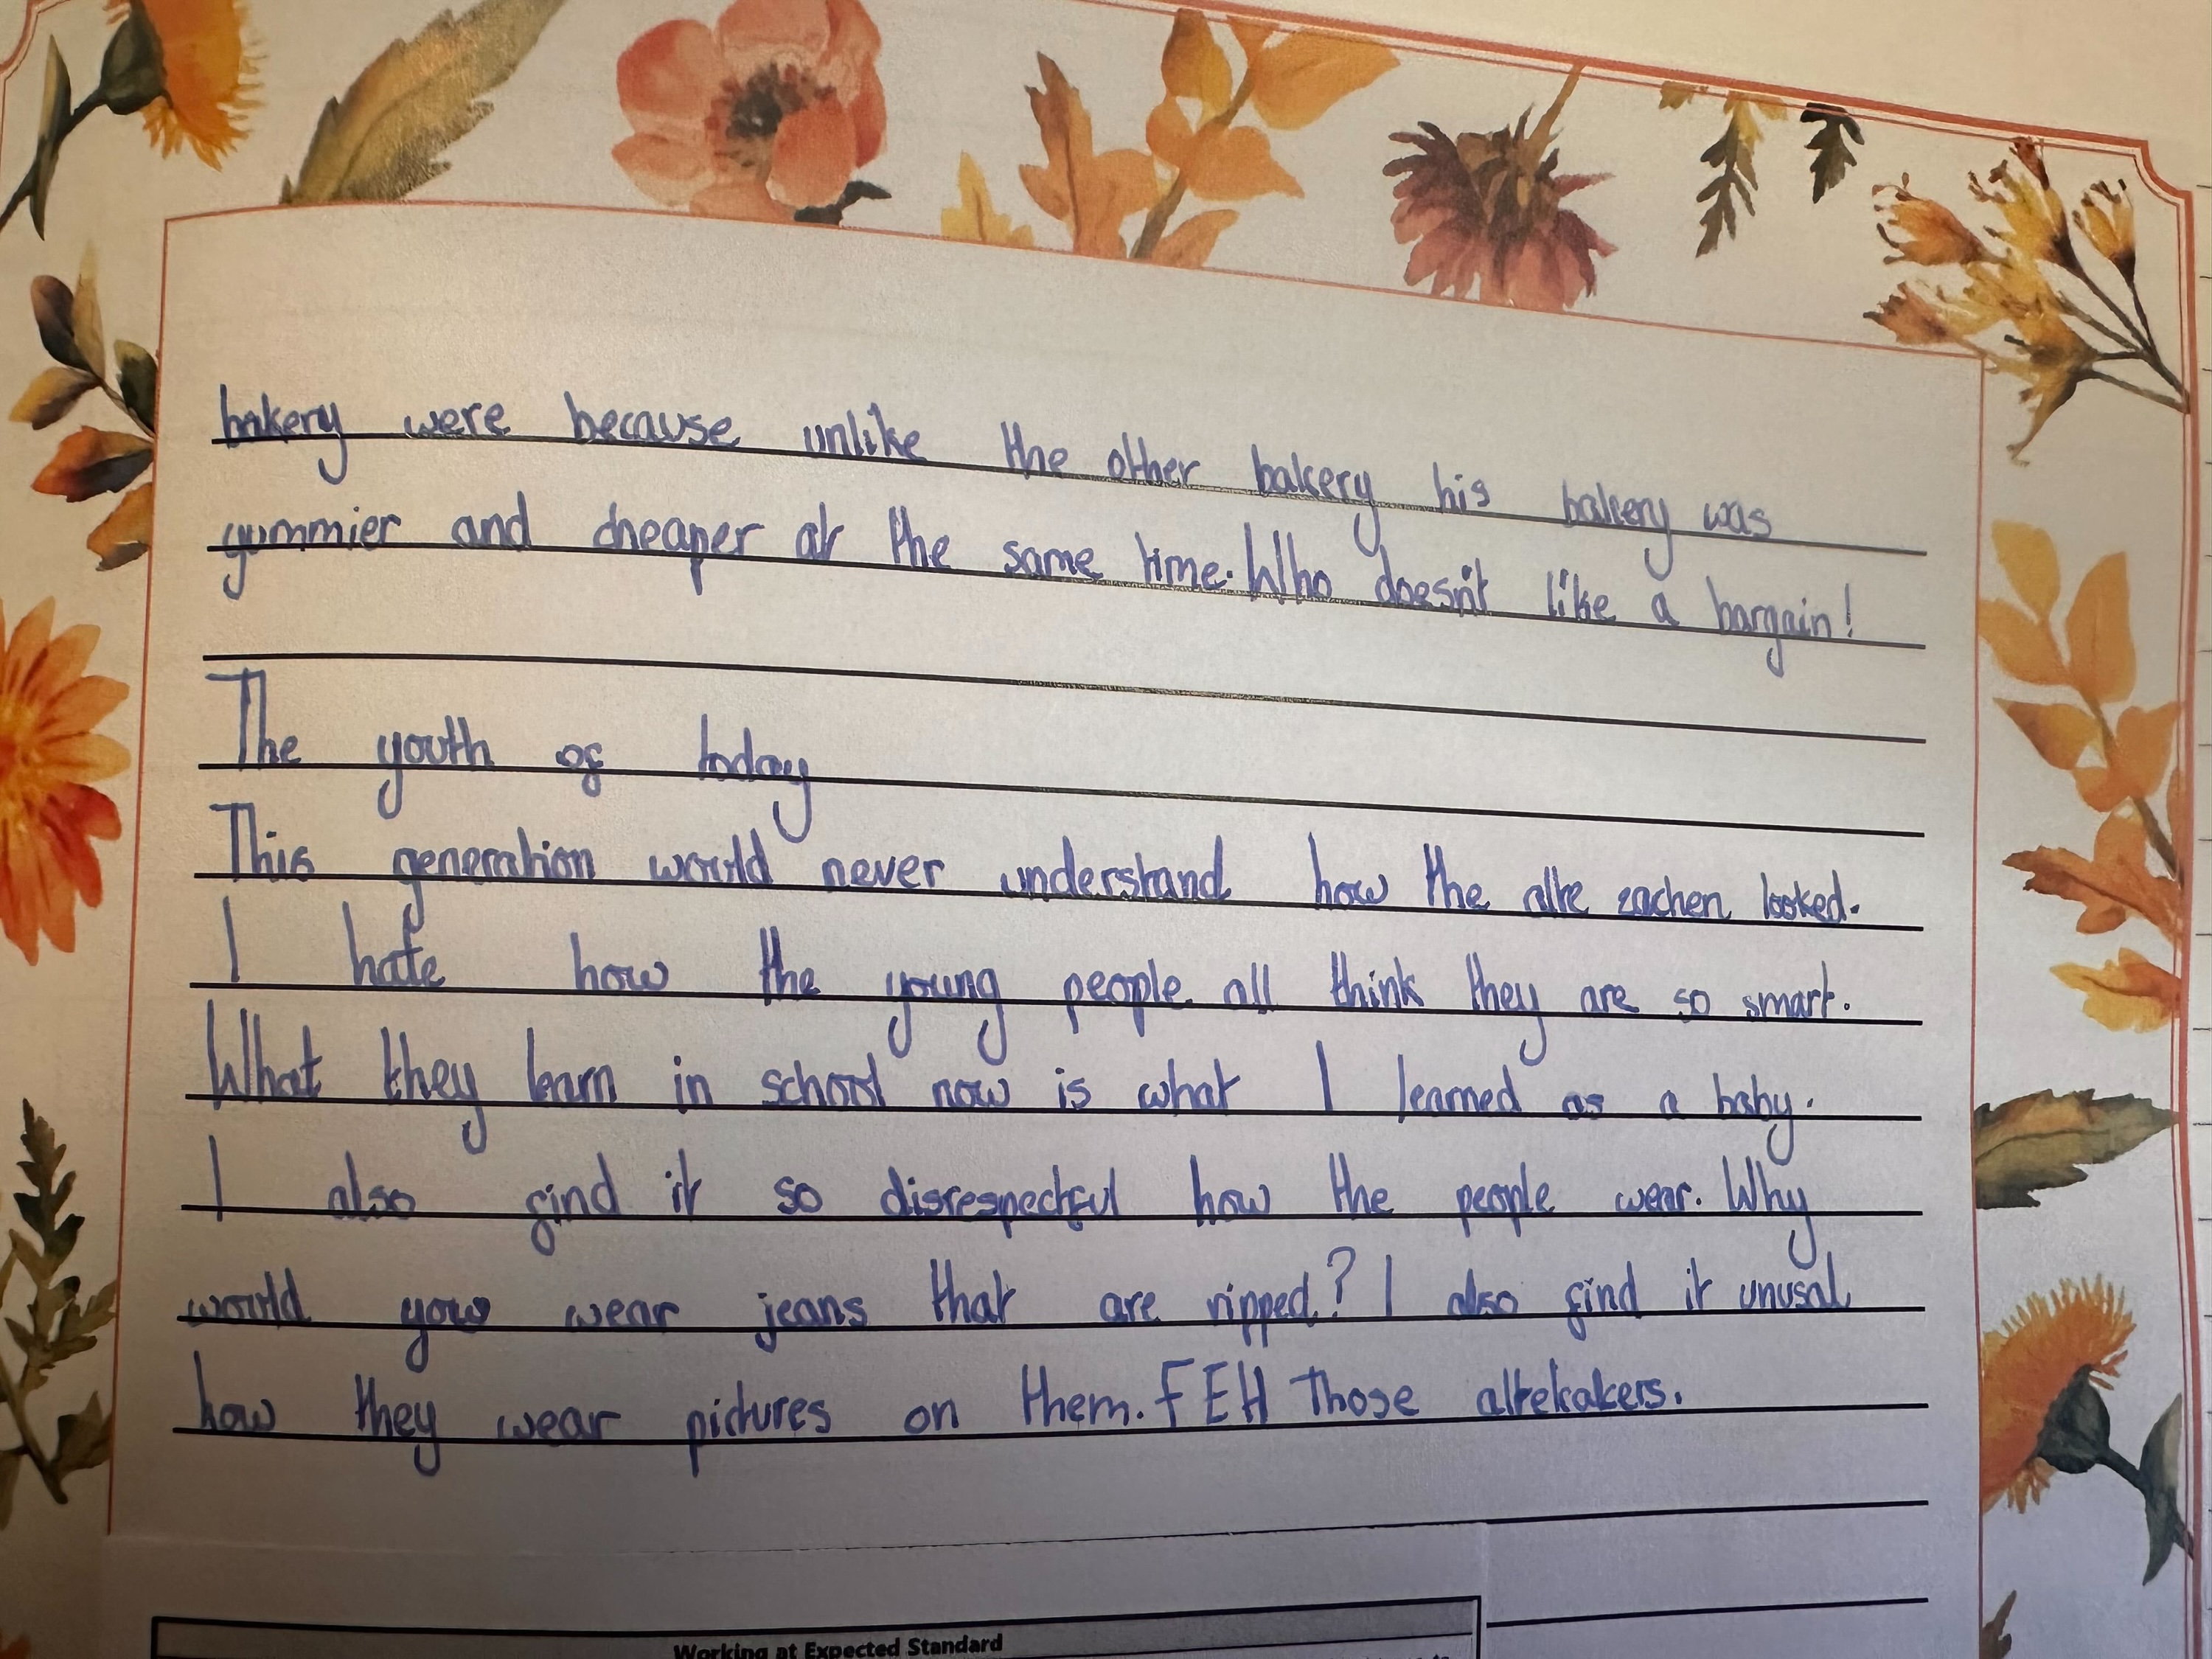 bakery were because unlike the other bakery his bakery was
yummier and cheaper at the same time. Who doesn't like a bargain!
The youth of today
This generation would never understand how the alte zachen looked.
I hate how the young people all think they are so smart.
What they learn in school now is what I learned as a baby.
I also find it so disrespectful how the people wear. Why
would you wear jeans that are ripped? I also find it unusal
how they wear pictures on them. FEH Those altekakers.
Working at Expected Standard